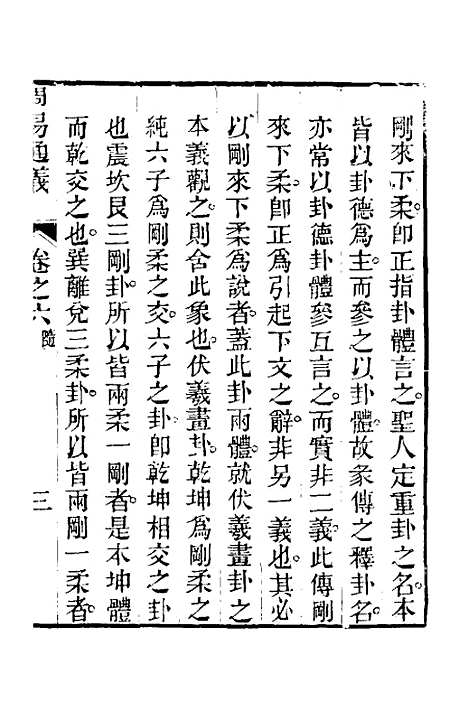 剛來下柔。卽正指卦體言之。聖人定重卦之名。本
皆以卦德爲主。而參之以卦體。故彖傳之釋卦名
亦常以卦德卦體參互言之。而實非二義。此傳剛
來下柔。卽正爲引起下文之辭。非另一義也。其必
以剛來下柔爲說者。蓋此卦兩體。就伏羲畫卦之
本義觀之。則含此象也。伏羲畫卦。乾坤爲剛柔之
純。六子爲剛柔之交。六子之卦。卽乾坤相交之卦
也。震坎艮三剛卦。所以皆兩柔一剛者。是本坤體
而乾交之也。巽離兌三柔卦。所以皆兩剛一柔者。
周易通義 卷之六 隨 三